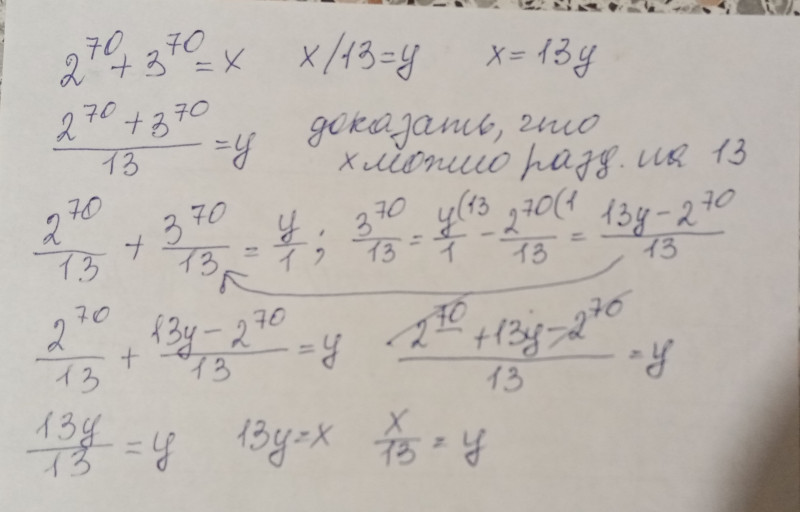 2^70 + 3^70 = x x/13 = y x = 13y
(2^70 + 3^70)/13 = y доказать, что
x можно разд. на 13
2^70/13 + 3^70/13 = y/1; 3^70/13 = y(13/1 - 2^70(1/13 = (13y - 2^70)/13
2^70/13 + (13y - 2^70)/13 = y (2^70 + 13y - 2^70)/13 = y
13y/13 = y 13y = x x/13 = y